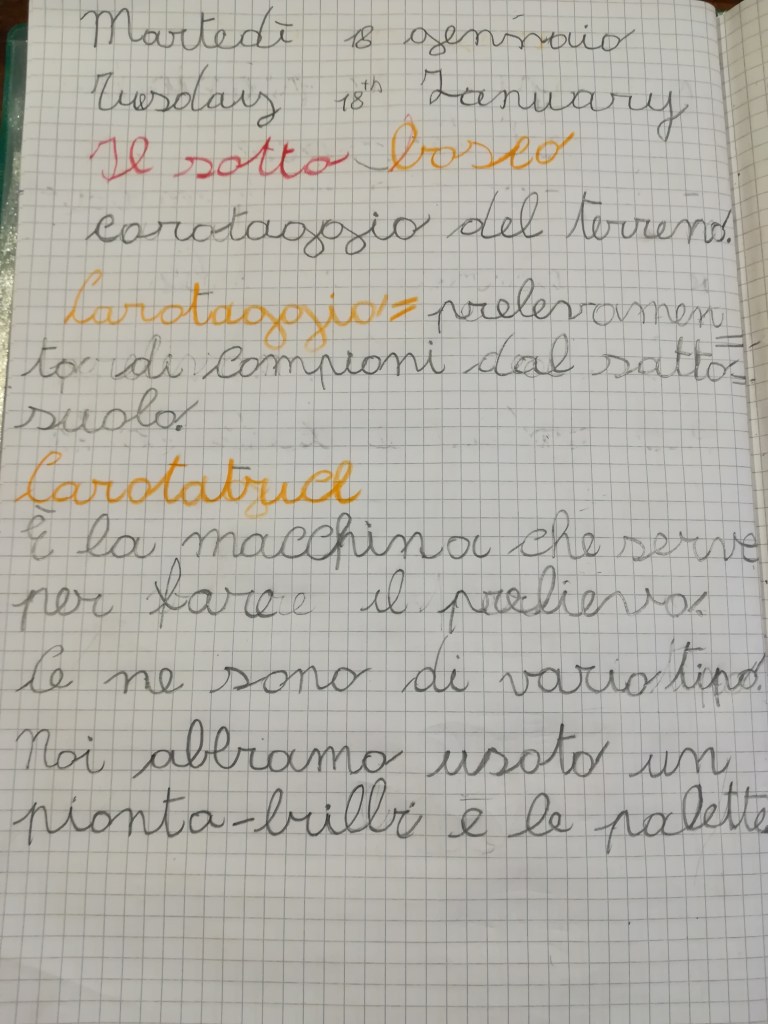 Martedì 18 gennaio
Tuesday 18th January
Il sotto bosco
carotaggio del terreno.
Carotaggio = prelevamen=
to di campioni dal sotto=
suolo.
Carotatrice
È la macchina che serve
per fare il prelievo.
Ce ne sono di vario tipo.
Noi abbiamo usato un
pianta-bulbi e le palette